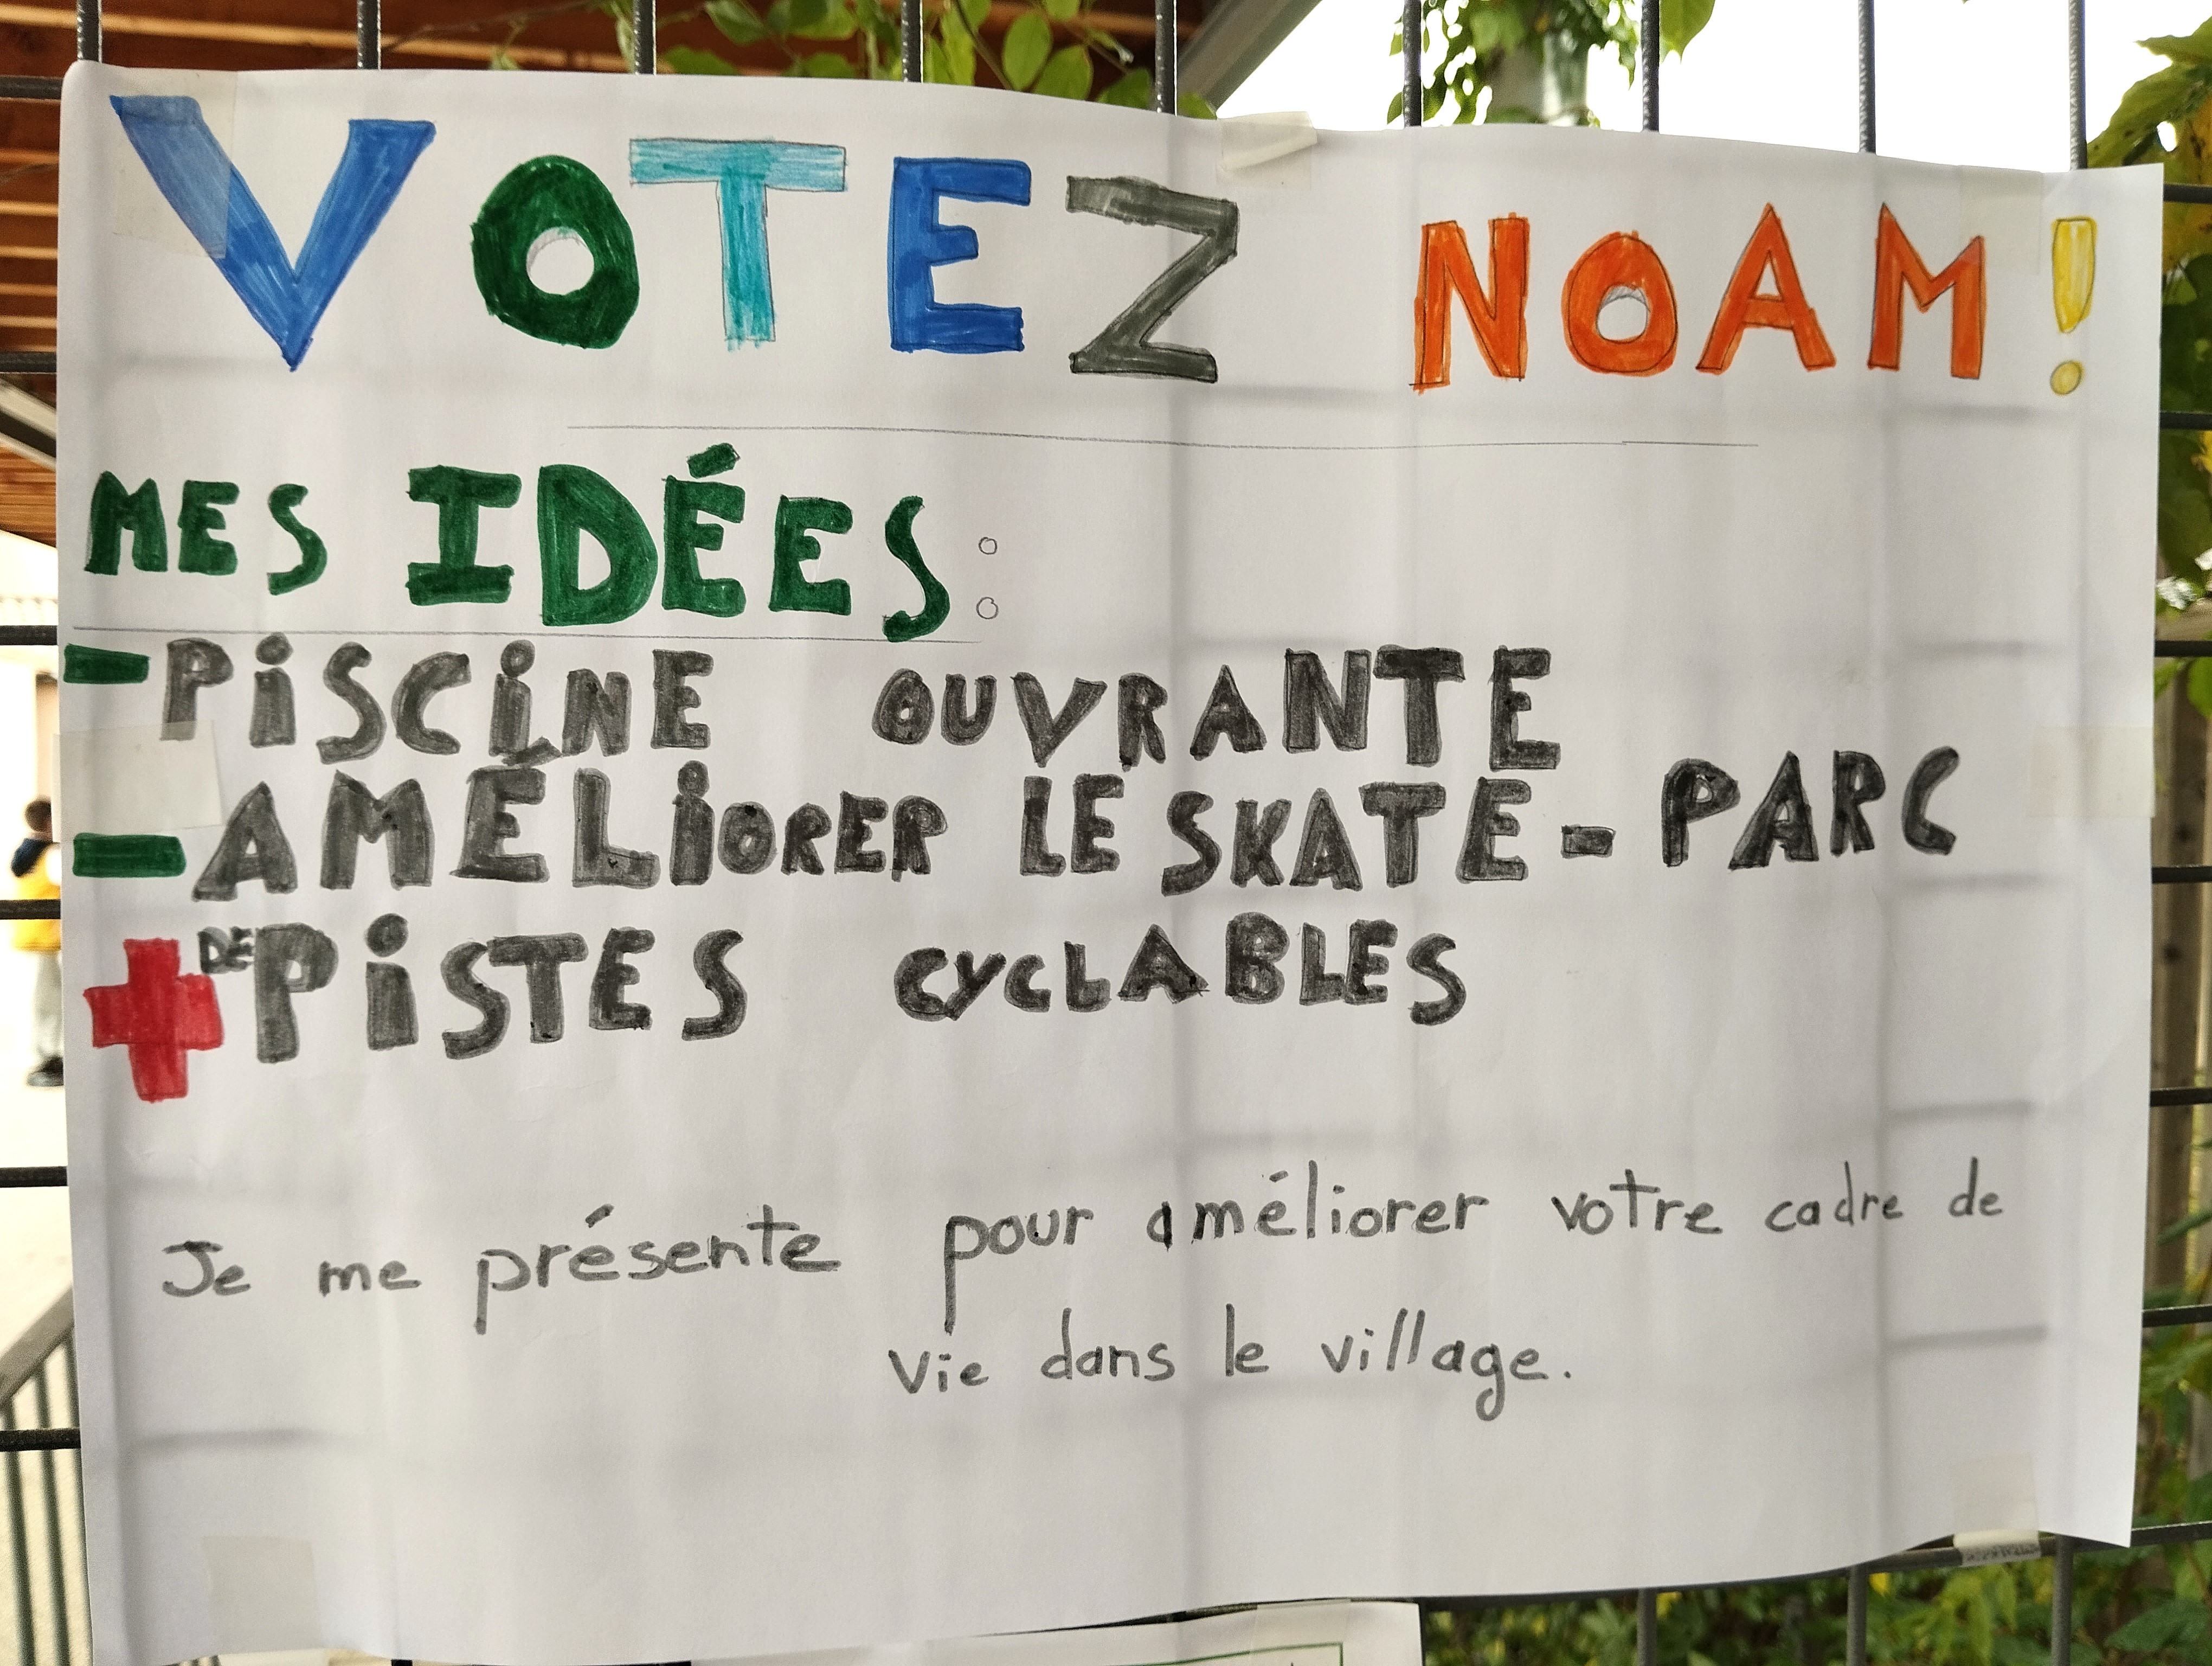 VOTEZ NOAM!
MES IDÉES:
- PiSCiNE OUVRANTE
- AMÉLiORER LE SKATE-PARC
+ DE PiSTES CYCLABLES
Je me présente pour améliorer votre cadre de
vie dans le village.